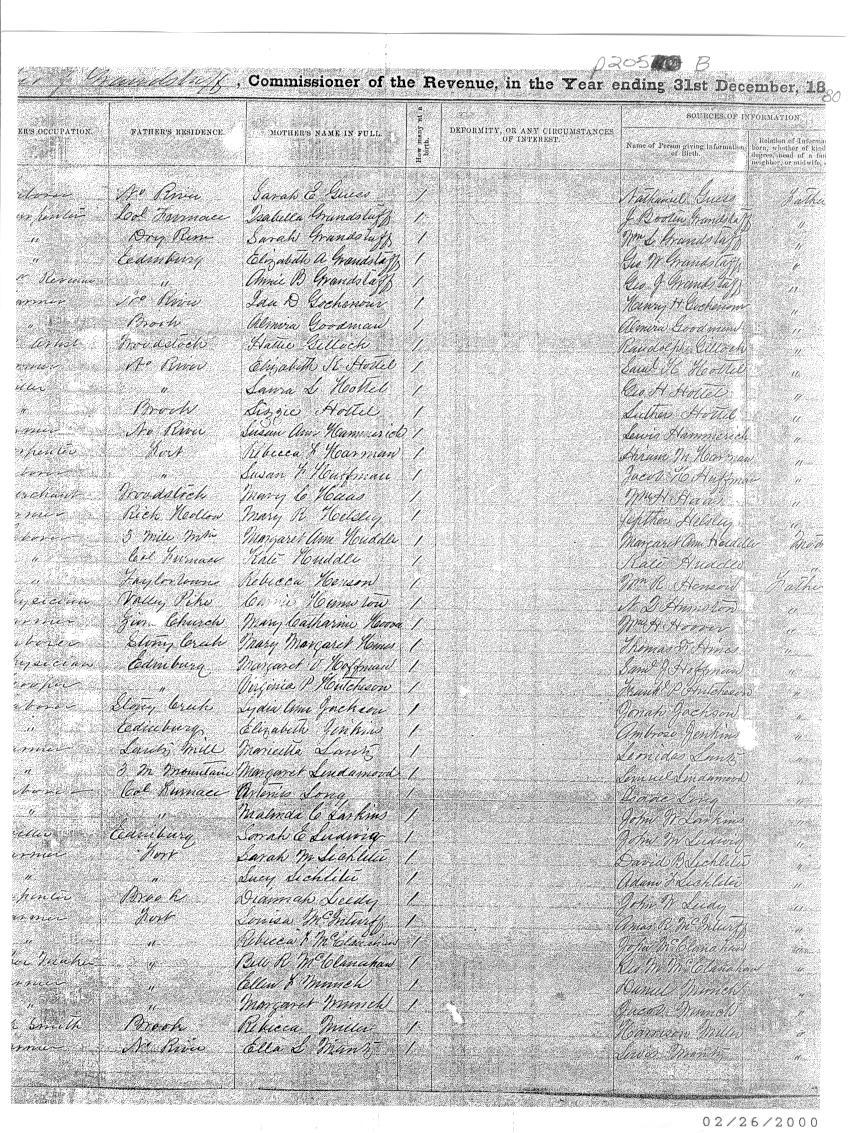 p205 B
Grandstaff, Commissioner of the Revenue, in the Year ending 31st December, 1880
ER'S OCCUPATION. FATHER'S RESIDENCE. MOTHER'S NAME IN FULL. How many at a birth. DEFORMITY, OR ANY CIRCUMSTANCES OF INTEREST. SOURCES OF INFORMATION
Name of Person giving Information of Birth. Relation of Informa born, whether of kind degree, head of a fam neighbor, or midwife,
No River Sarah E Guess 1 Nathaniel Guess Fathe
penter Col Furnace Isabella Grandstaff 1 J Booten Grandstaff "
" Dry Run Sarah Grandstaff 1 Wm L Grandstaff "
" Edinburg Elizabeth A Grandstaff 1 Geo W Grandstaff "
Revenue " Annie B Grandstaff 1 Geo J Grandstaff "
armer No River Ida D Gochenour 1 Henry H Gochenour "
" Brook Almira Goodman 1 Almira Goodman "
Artist Woodstock Hattie Gilloch 1 Randolph Gilloch "
rmer No River Elizabeth K Hottel 1 Saml H Hottel "
" Laura L Hottel 1 Geo H Hottel "
" Brook Lizzie Hottel 1 Luther Hottel "
rmer No River Susan Ann Hammerich 1 Lewis Hammerich "
rpenter Fort Rebecca F Harman 1 Hiram M Harman "
borer " Susan F Huffman 1 Jacob H Huffman "
erchant Woodstock Mary C Haas 1 Wm H Haas "
rmer Rich Hollow Mary R Helsley 1 Jepthen Helsley "
borer 3 Mile Mtn Margaret Ann Huddle 1 Margaret Ann Huddle Moth
" Col Furnace Kate Huddle 1 Kate Huddle "
" Taylortown Rebecca Henson 1 Wm R Henson Father
ysician Valley Pike Carrie Humston 1 N D Humston "
rmer Zion Church Mary Catharine Hoova 1 Wm H Hoover "
borer Stony Creek Mary Margaret Hines 1 Thomas F Hines "
ysician Edinburg Margaret V Hoffman 1 Saml J Hoffman "
ooper " Virginia P Hutcheson 1 Frank P Hutcheson "
aborer Stony Creek Lydia Ann Jackson 1 Jonah Jackson "
" Edinburg Elizabeth Jenkins 1 Ambrose Jenkins "
armer Lantz Mill Marietta Lantz 1 Leonidas Lantz "
" 3 M Mountain Margaret Lindamood 1 Lemuel Lindamood "
aborer Col Furnace Artemis Long 1 Isaac Long "
" Malinda C Larkins 1 John W Larkins "
Edinburg Sarah E Ludwig 1 John M Ludwig "
armer Fort Sarah M Lichliter 1 David B Lichliter "
" " Lucy Lichliter 1 Adam F Lichliter "
penter Brook Diannah Leedy 1 John W Leedy "
armer Fort Louisa McInturff 1 Amos R McInturff "
" " Rebecca F McClanahan 1 John McClanahan "
" Bell R McClanahan 1 Geo M McClanahan "
rmer " Ellen F Munch 1 Daniel Munch "
" " Margaret Munch 1 Jacob Munch "
Smith Brook Rebecca Miller 1 Harrison Miller "
armer No River Ella L Mantz 1 Lewis Mantz "
02/26/2000